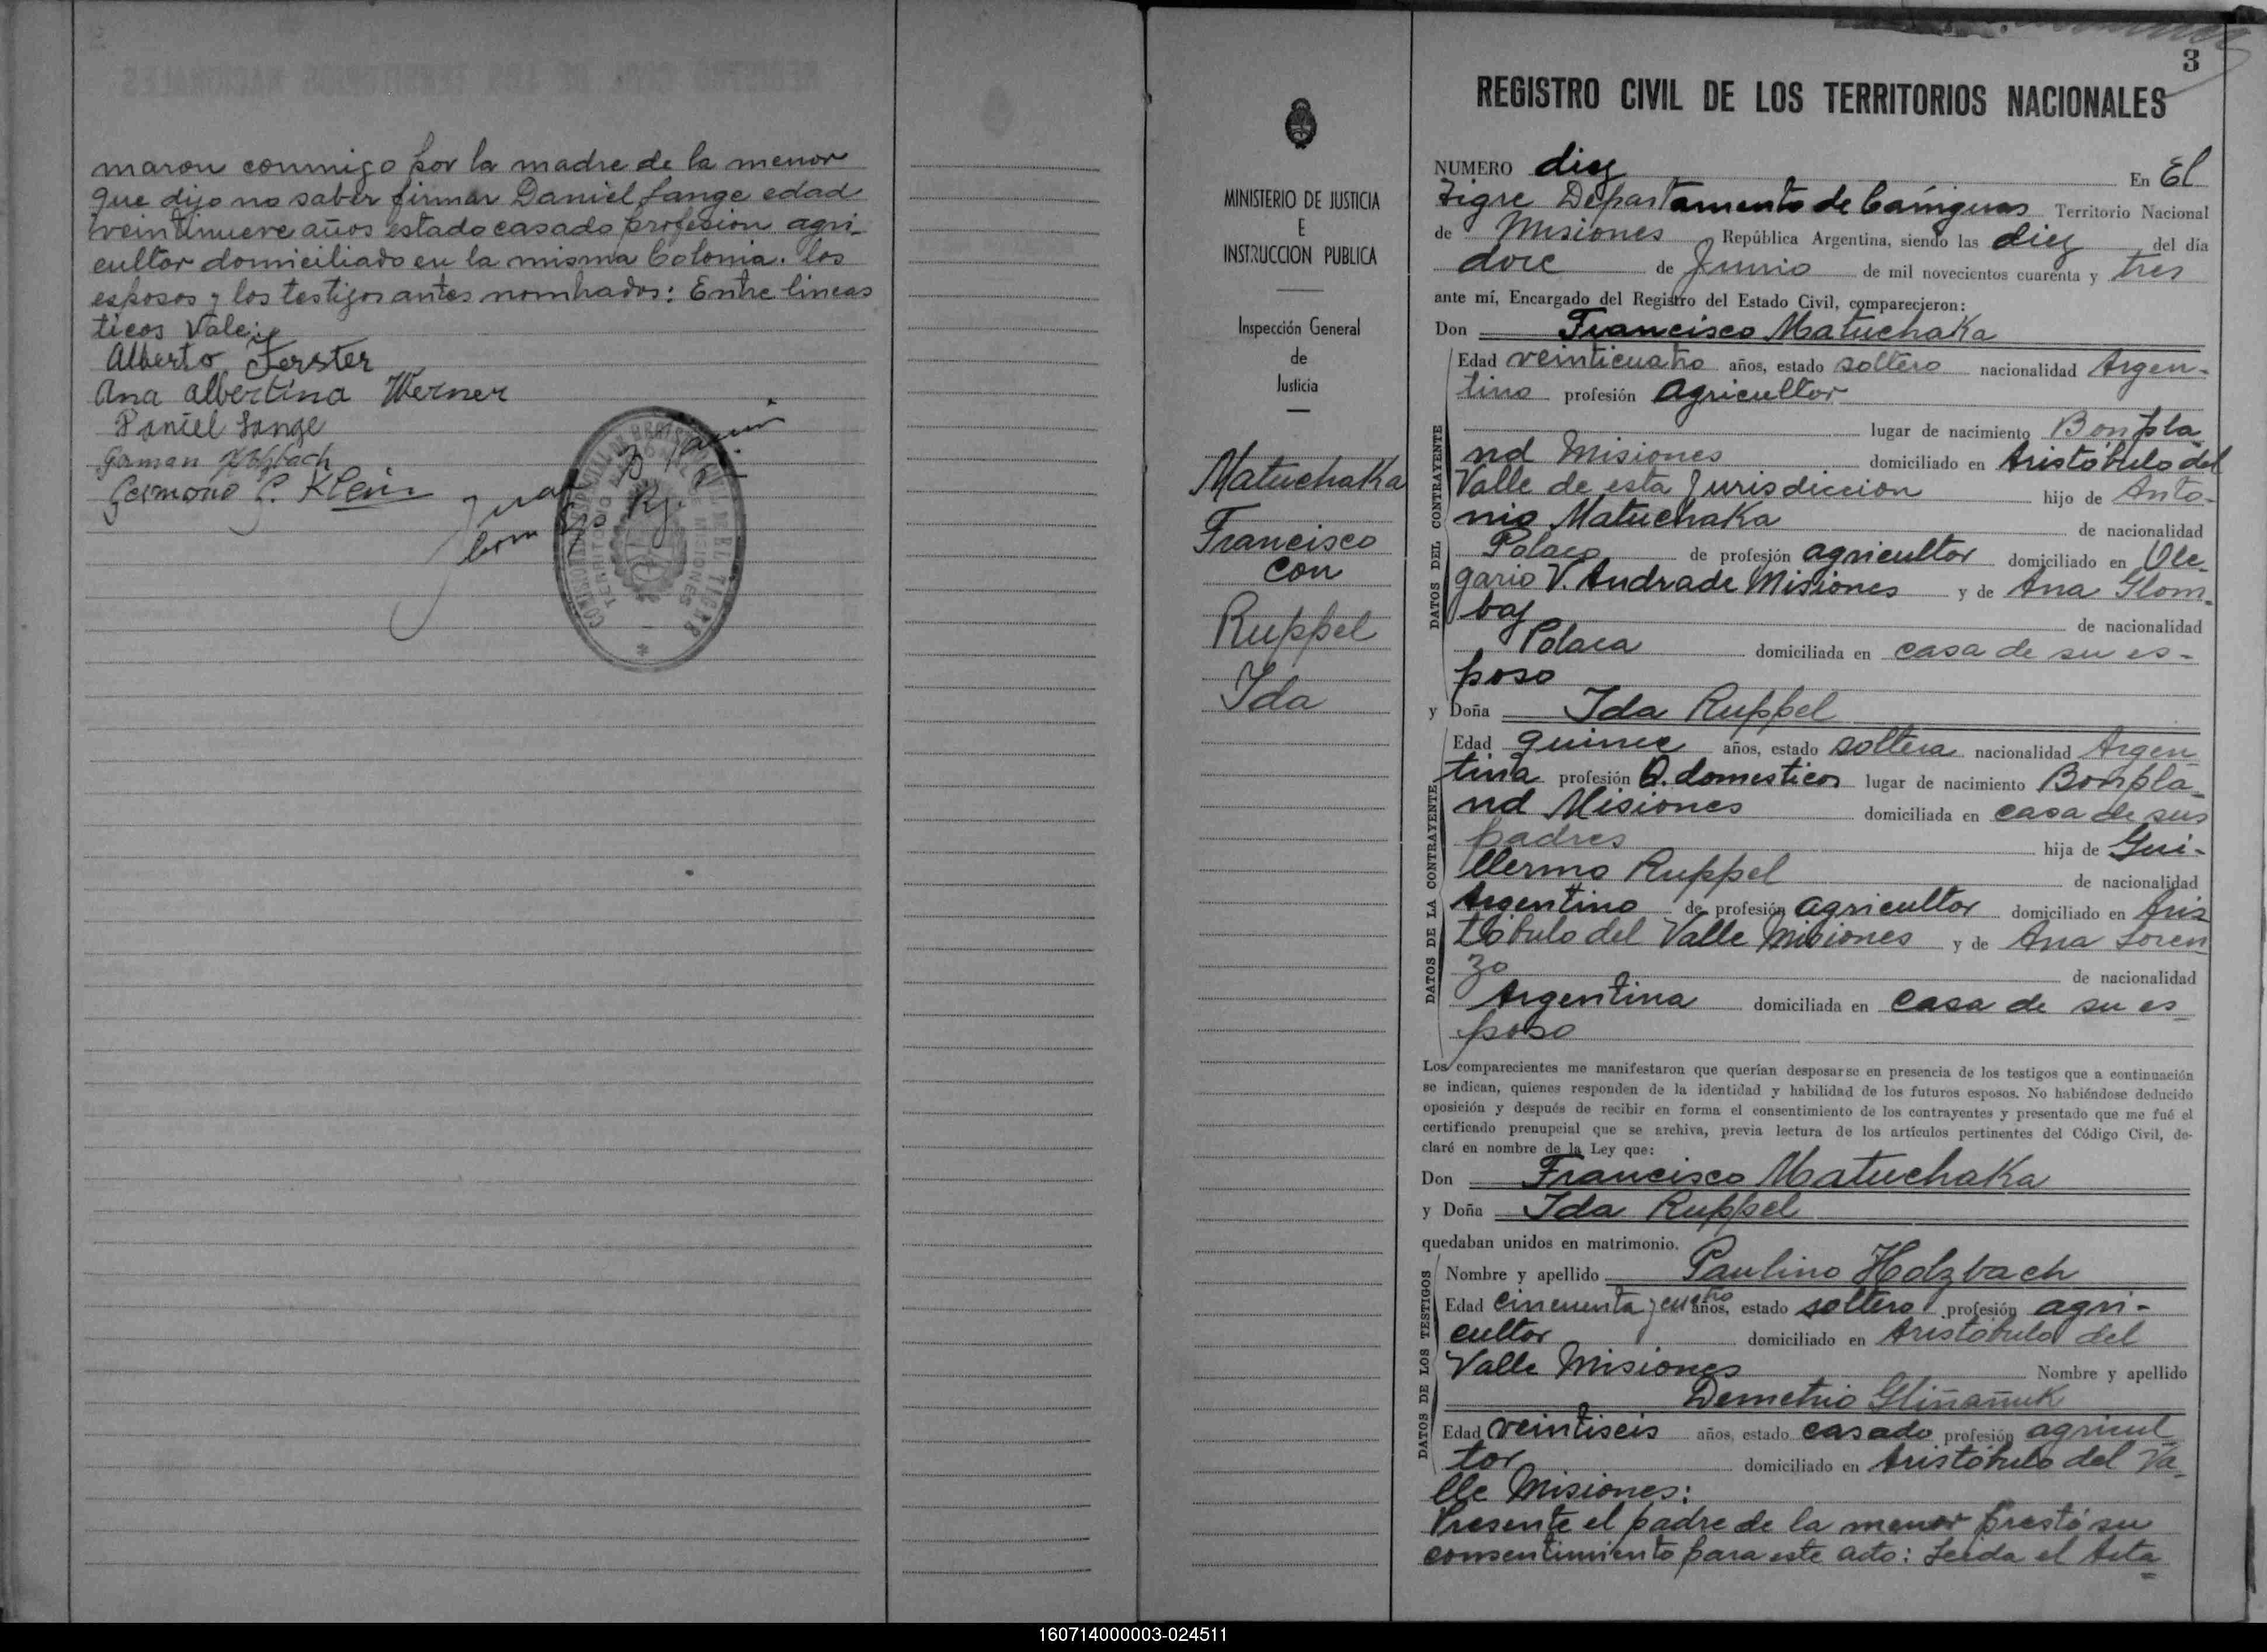 maron conmigo por la madre de la menor
que dijo no saber firmar Daniel Lange edad
treintinueve años estado casado profesion agri-
cultor domiciliado en la misma Colonia. los
esposos y los testigos antes nombrados: Entre lineas
ticos Vale:
Alberto Ferster
Ana Albertina Werner
Daniel Lange
German Holzbach
Germano G. Klein
3
REGISTRO CIVIL DE LOS TERRITORIOS NACIONALES
MINISTERIO DE JUSTICIA
E
INSTRUCCION PUBLICA
Inspección General
de
Justicia
Matuchaka
Francisco
con
Ruppel
Ida
NUMERO diez En El
Tigre Departamento de Cainguas Territorio Nacional
de Misiones República Argentina, siendo las diez del día
doce de Junio de mil novecientos cuarenta y tres
ante mí, Encargado del Registro del Estado Civil, comparecieron:
Don Francisco Matuchaka
DATOS DEL CONTRAYENTE
Edad veinticuatro años, estado soltero nacionalidad Argen-
tino profesión agricultor
lugar de nacimiento Bonpla
nd Misiones domiciliado en Aristobulo del
Valle de esta Jurisdiccion hijo de Anto-
nio Matuchaka de nacionalidad
Polaco de profesión agricultor domiciliado en Ole-
gario V. Andrade Misiones y de Ana Glom-
baj de nacionalidad
Polaca domiciliada en casa de su es-
poso
y Doña Ida Ruppel
DATOS DE LA CONTRAYENTE
Edad quince años, estado soltera nacionalidad Argen
tina profesión Q. domesticos lugar de nacimiento Bonpla-
nd Misiones domiciliada en casa de sus
padres hija de Gui-
llermo Ruppel de nacionalidad
Argentino de profesión agricultor domiciliado en Aris
tobulo del Valle Misiones y de Ana Loren
zo de nacionalidad
Argentina domiciliada en casa de su es-
poso
Los comparecientes me manifestaron que querían desposarse en presencia de los testigos que a continuación
se indican, quienes responden de la identidad y habilidad de los futuros esposos. No habiéndose deducido
oposición y después de recibir en forma el consentimiento de los contrayentes y presentado que me fué el
certificado prenupcial que se archiva, previa lectura de los artículos pertinentes del Código Civil, de-
claré en nombre de la Ley que:
Don Francisco Matuchaka
y Doña Ida Ruppel
quedaban unidos en matrimonio.
DATOS DE LOS TESTIGOS
Nombre y apellido Paulino Holzbach
Edad cincuenta y cuatro años, estado soltero profesión agri-
cultor domiciliado en Aristobulo del
Valle Misiones Nombre y apellido
Demetrio Gliñañuk
Edad veintiseis años, estado casado profesión agricul
tor domiciliado en Aristobulo del Va-
lle Misiones:
Presente el padre de la menor prestó su
consentimiento para este acto: Leida el Acta
160714000003-024511